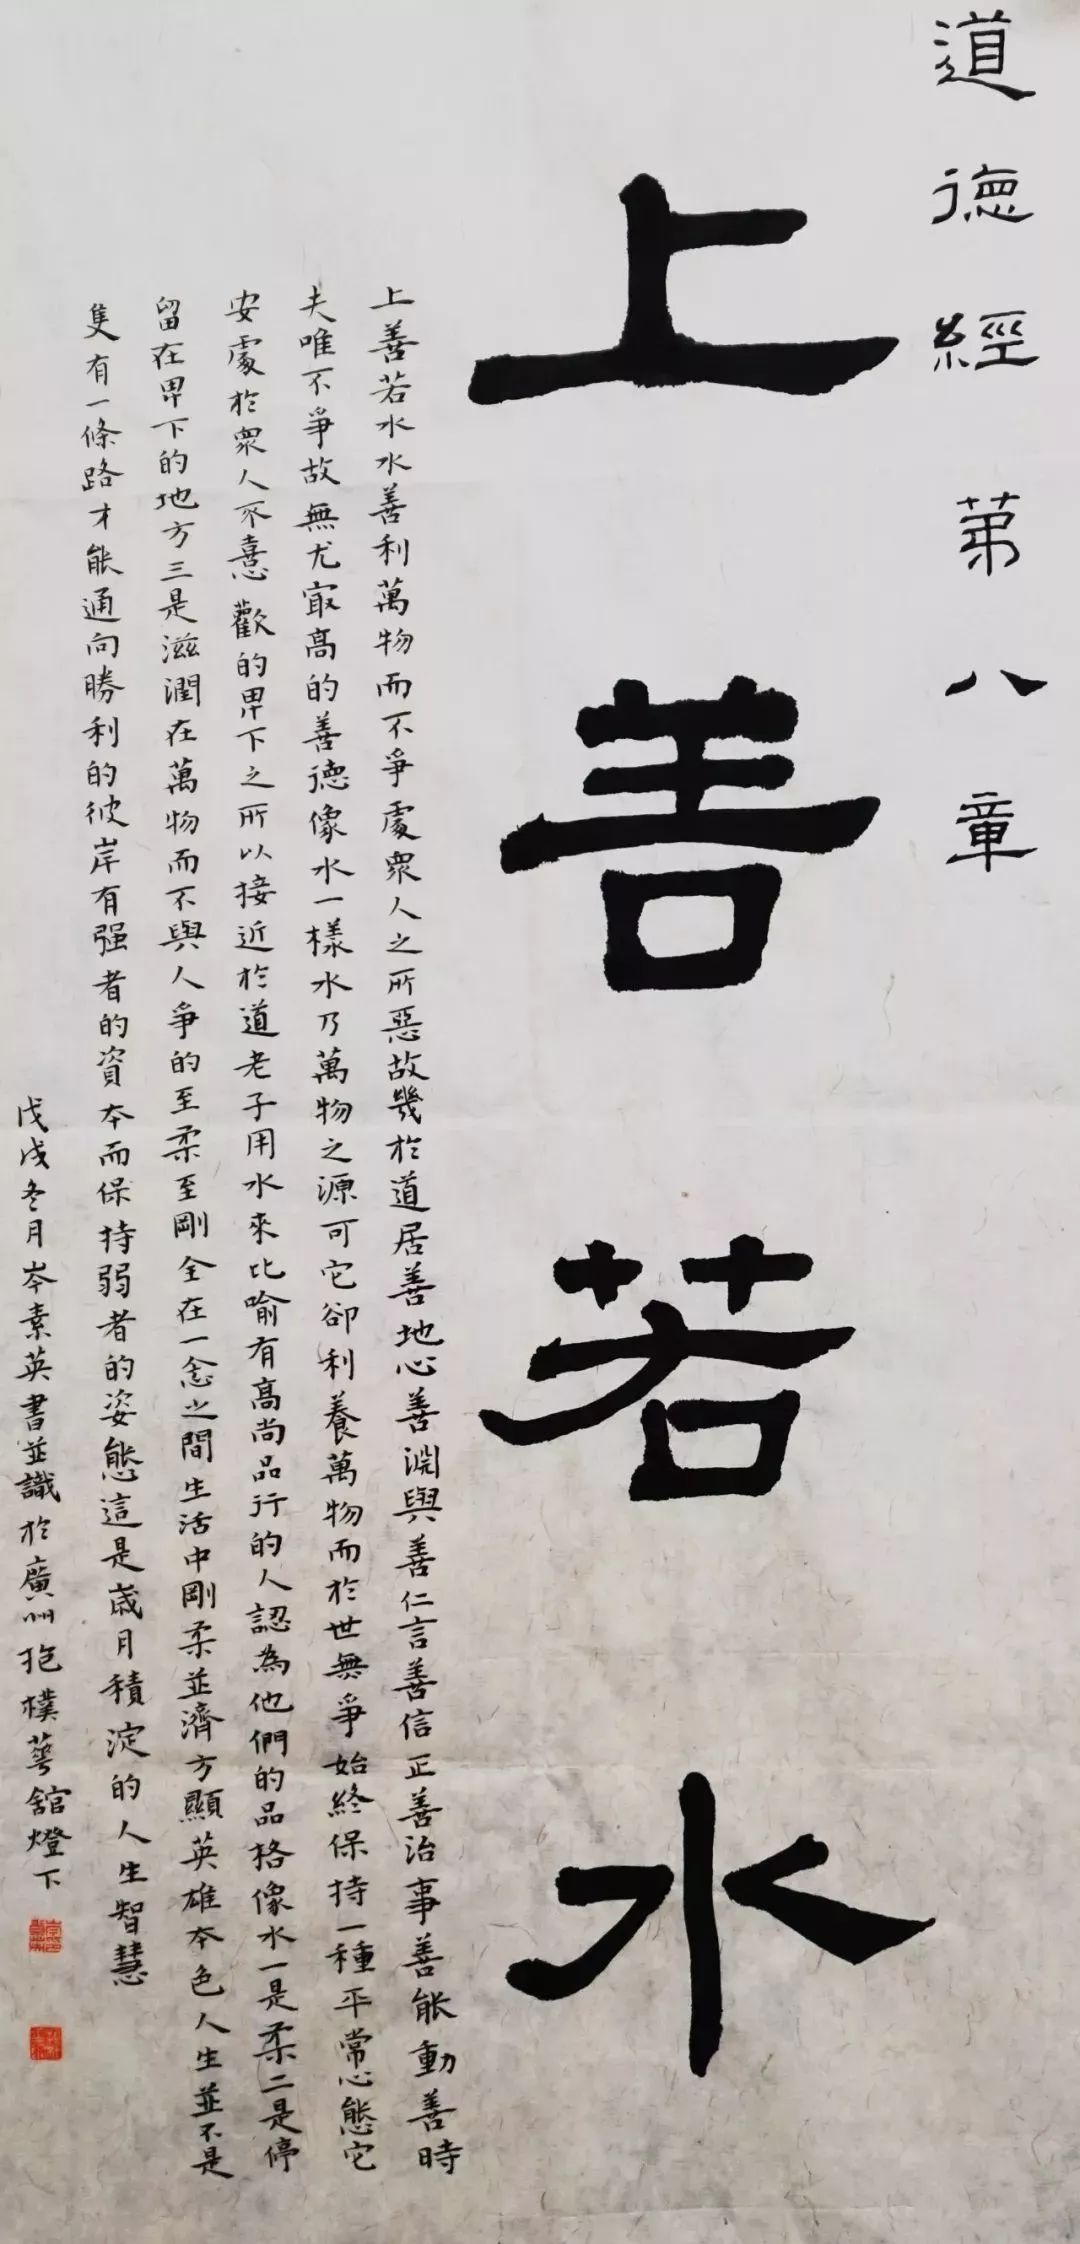 道德經第八章
上善若水
上善若水水善利萬物而不爭處眾人之所惡故幾於道居善地心善淵與善仁言善信正善治事善能動善時
夫唯不爭故無尤最高的善德像水一樣水乃萬物之源可它卻利養萬物而於世無爭始終保持一種平常心態它
安處於眾人不憙歡的卑下之所以接近於道老子用水來比喻有高尚品行的人認為他們的品格像水一是柔二是停
留在卑下的地方三是滋潤在萬物而不與人爭的至柔至剛全在一念之間生活中剛柔並濟方顯英雄本色人生並不是
隻有一條路才能通向勝利的彼岸有强者的資本而保持弱者的姿態這是歲月積淀的人生智慧
戊戌冬月岑素英書並識於廣州抱樸華舘燈下